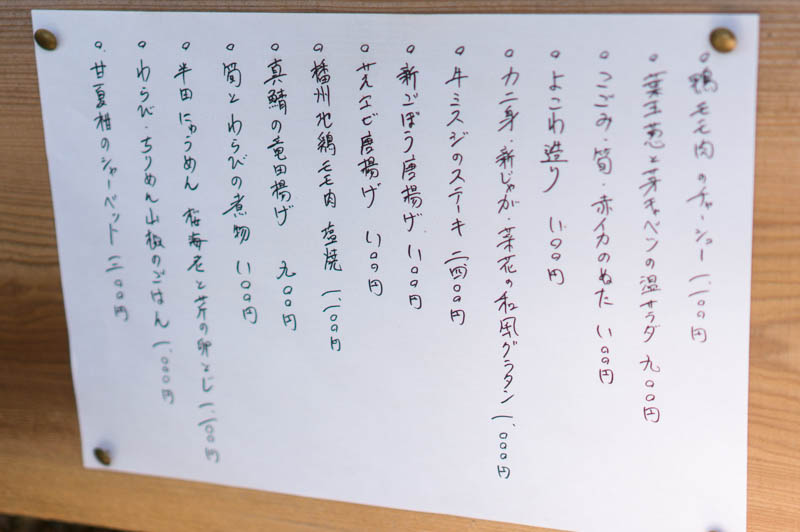 。鴨モモ肉のチャーシュー 一、一〇〇円
。葉玉葱と芽キャベツの温サラダ 九〇〇円
。こごみ・筍・赤イカのぬた 一、一〇〇円
。よこわ造り 一、一〇〇円
。カニ身・新じゃが・菜花の和風グラタン 一、〇〇〇円
。牛ミスジのステーキ 二四〇〇円
。新ごぼう唐揚げ 一、一〇〇円
。サルエビ唐揚げ 一、一〇〇円
。播州地鶏モモ肉 塩焼 一、一〇〇円
。真鯖の竜田揚げ 九〇〇円
。筍とわらびの煮物 一、一〇〇円
。半田にゅうめん 桜海老と芹の卵とじ 一、一〇〇円
。わらび・ちりめん山椒のごはん 一、〇〇〇円
。甘夏柑のシャーベット 三〇〇円